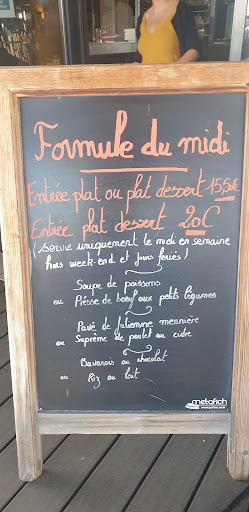 Formule du midi
Entrée plat ou plat dessert 15,5€
Entrée plat dessert 20€
(servie uniquement le midi en semaine
hors week-end et jours fériés)
Soupe de poissons
ou Presse de boeuf aux petits légumes
Pavé de julienne meunière
ou Suprème de poulet au cidre
Bavarois au chocolat
ou Riz au lait
metafich